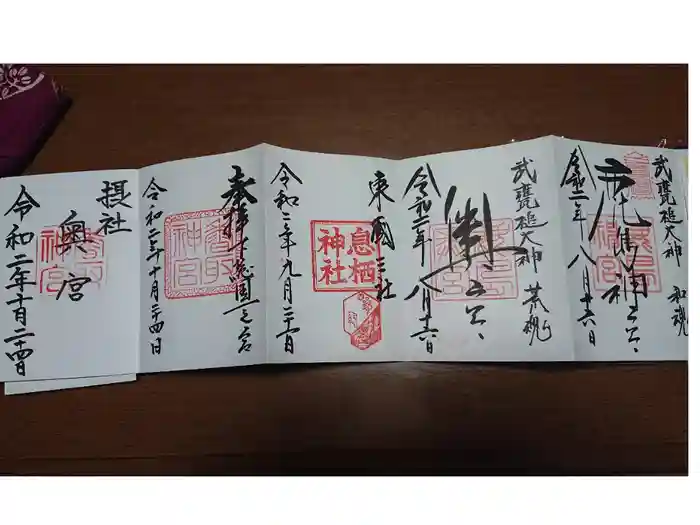 武甕槌大神 和魂
鹿島神宮
令和二年 八月十六日
武甕槌大神 荒魂
令和二年 八月十六日
東國三社
息栖
神社
令和二年九月二十一日
奉拝 下総国一之宮
香取
神宮
令和二年十月二十四日
摂社
奥宮
香取
神宮
令和二年十月二十四日